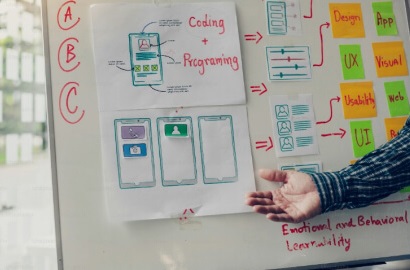 A
B
C
Coding
+
Programing
Design
App
UX
Visual
Usability
Web
UI
Emotional and Behavioral
Learnability